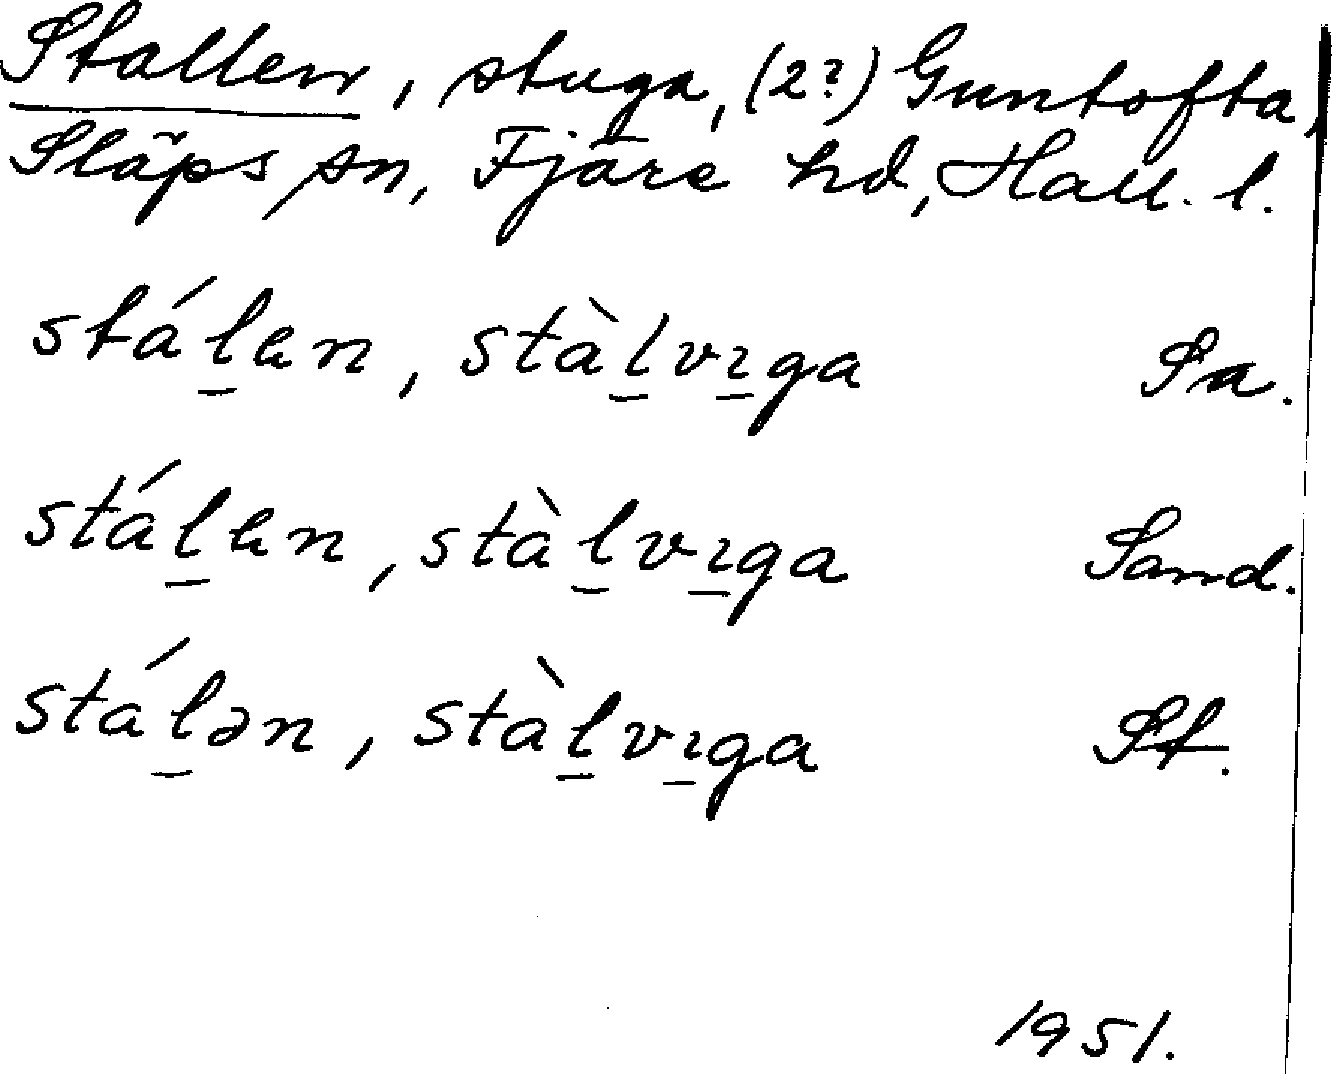 Stallen, stuga, (2?) Guntofta,
Släps sn, Fjäre hd, Hall. l.
stál̲en, stàl̲vı̲ga Sa.
stál̲en, stàl̲vı̲ga Sand.
stál̲ən, stàl̲vı̲ga Sf.
1951.